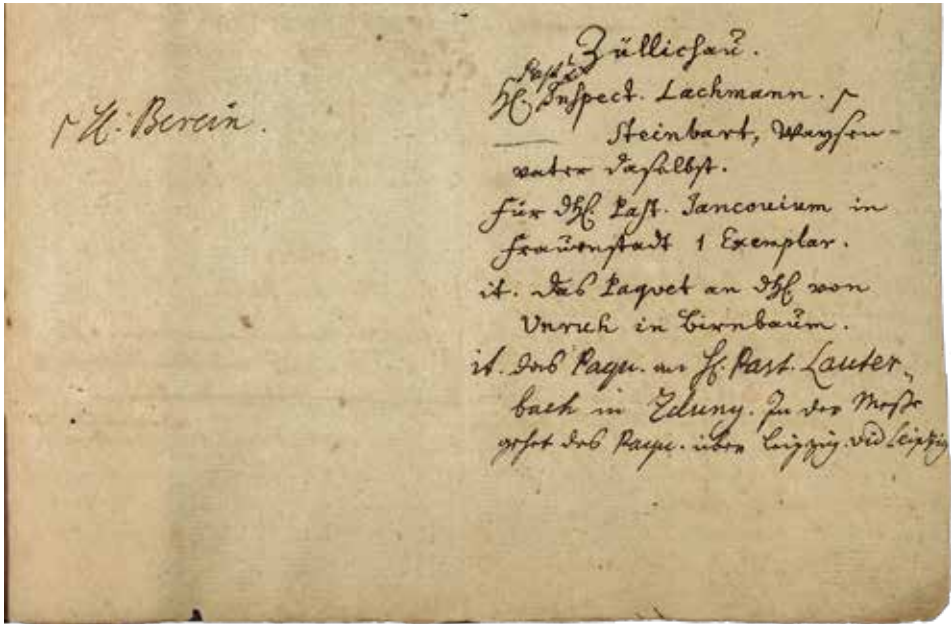 Züllichau.
Past. et
H. Inspect. Lachmann. ┌
┌ H. Berein.
Steinbart, Waysen-
vater daselbst.
für dH. Past. Jancovium in
Frauenstadt 1 Exemplar.
it. das Paquet an dH von
Unruh in Birnbaum.
it. das Paqu. an H. Past. Lauter-
bach in Zduny. In der Messe
gehet das Paqu. über Leipzig. vid Leipzig